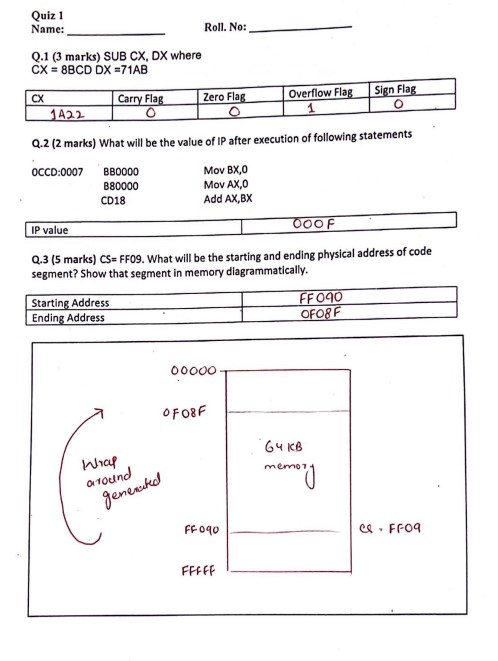 Quiz 1
Name: Roll. No:
Q.1 (3 marks) SUB CX, DX where
CX = 8BCD DX =71AB
CX Carry Flag Zero Flag Overflow Flag Sign Flag
1A22 0 0 1 0
Q.2 (2 marks) What will be the value of IP after execution of following statements
0CCD:0007 BB0000 Mov BX,0
B80000 Mov AX,0
CD18 Add AX,BX
IP value 000F
Q.3 (5 marks) CS= FF09. What will be the starting and ending physical address of code
segment? Show that segment in memory diagrammatically.
Starting Address FF090
Ending Address 0F08F
00000
0F08F
64 KB
memory
Wrap
around
generated
FF090 CS = FF09
FFFFF